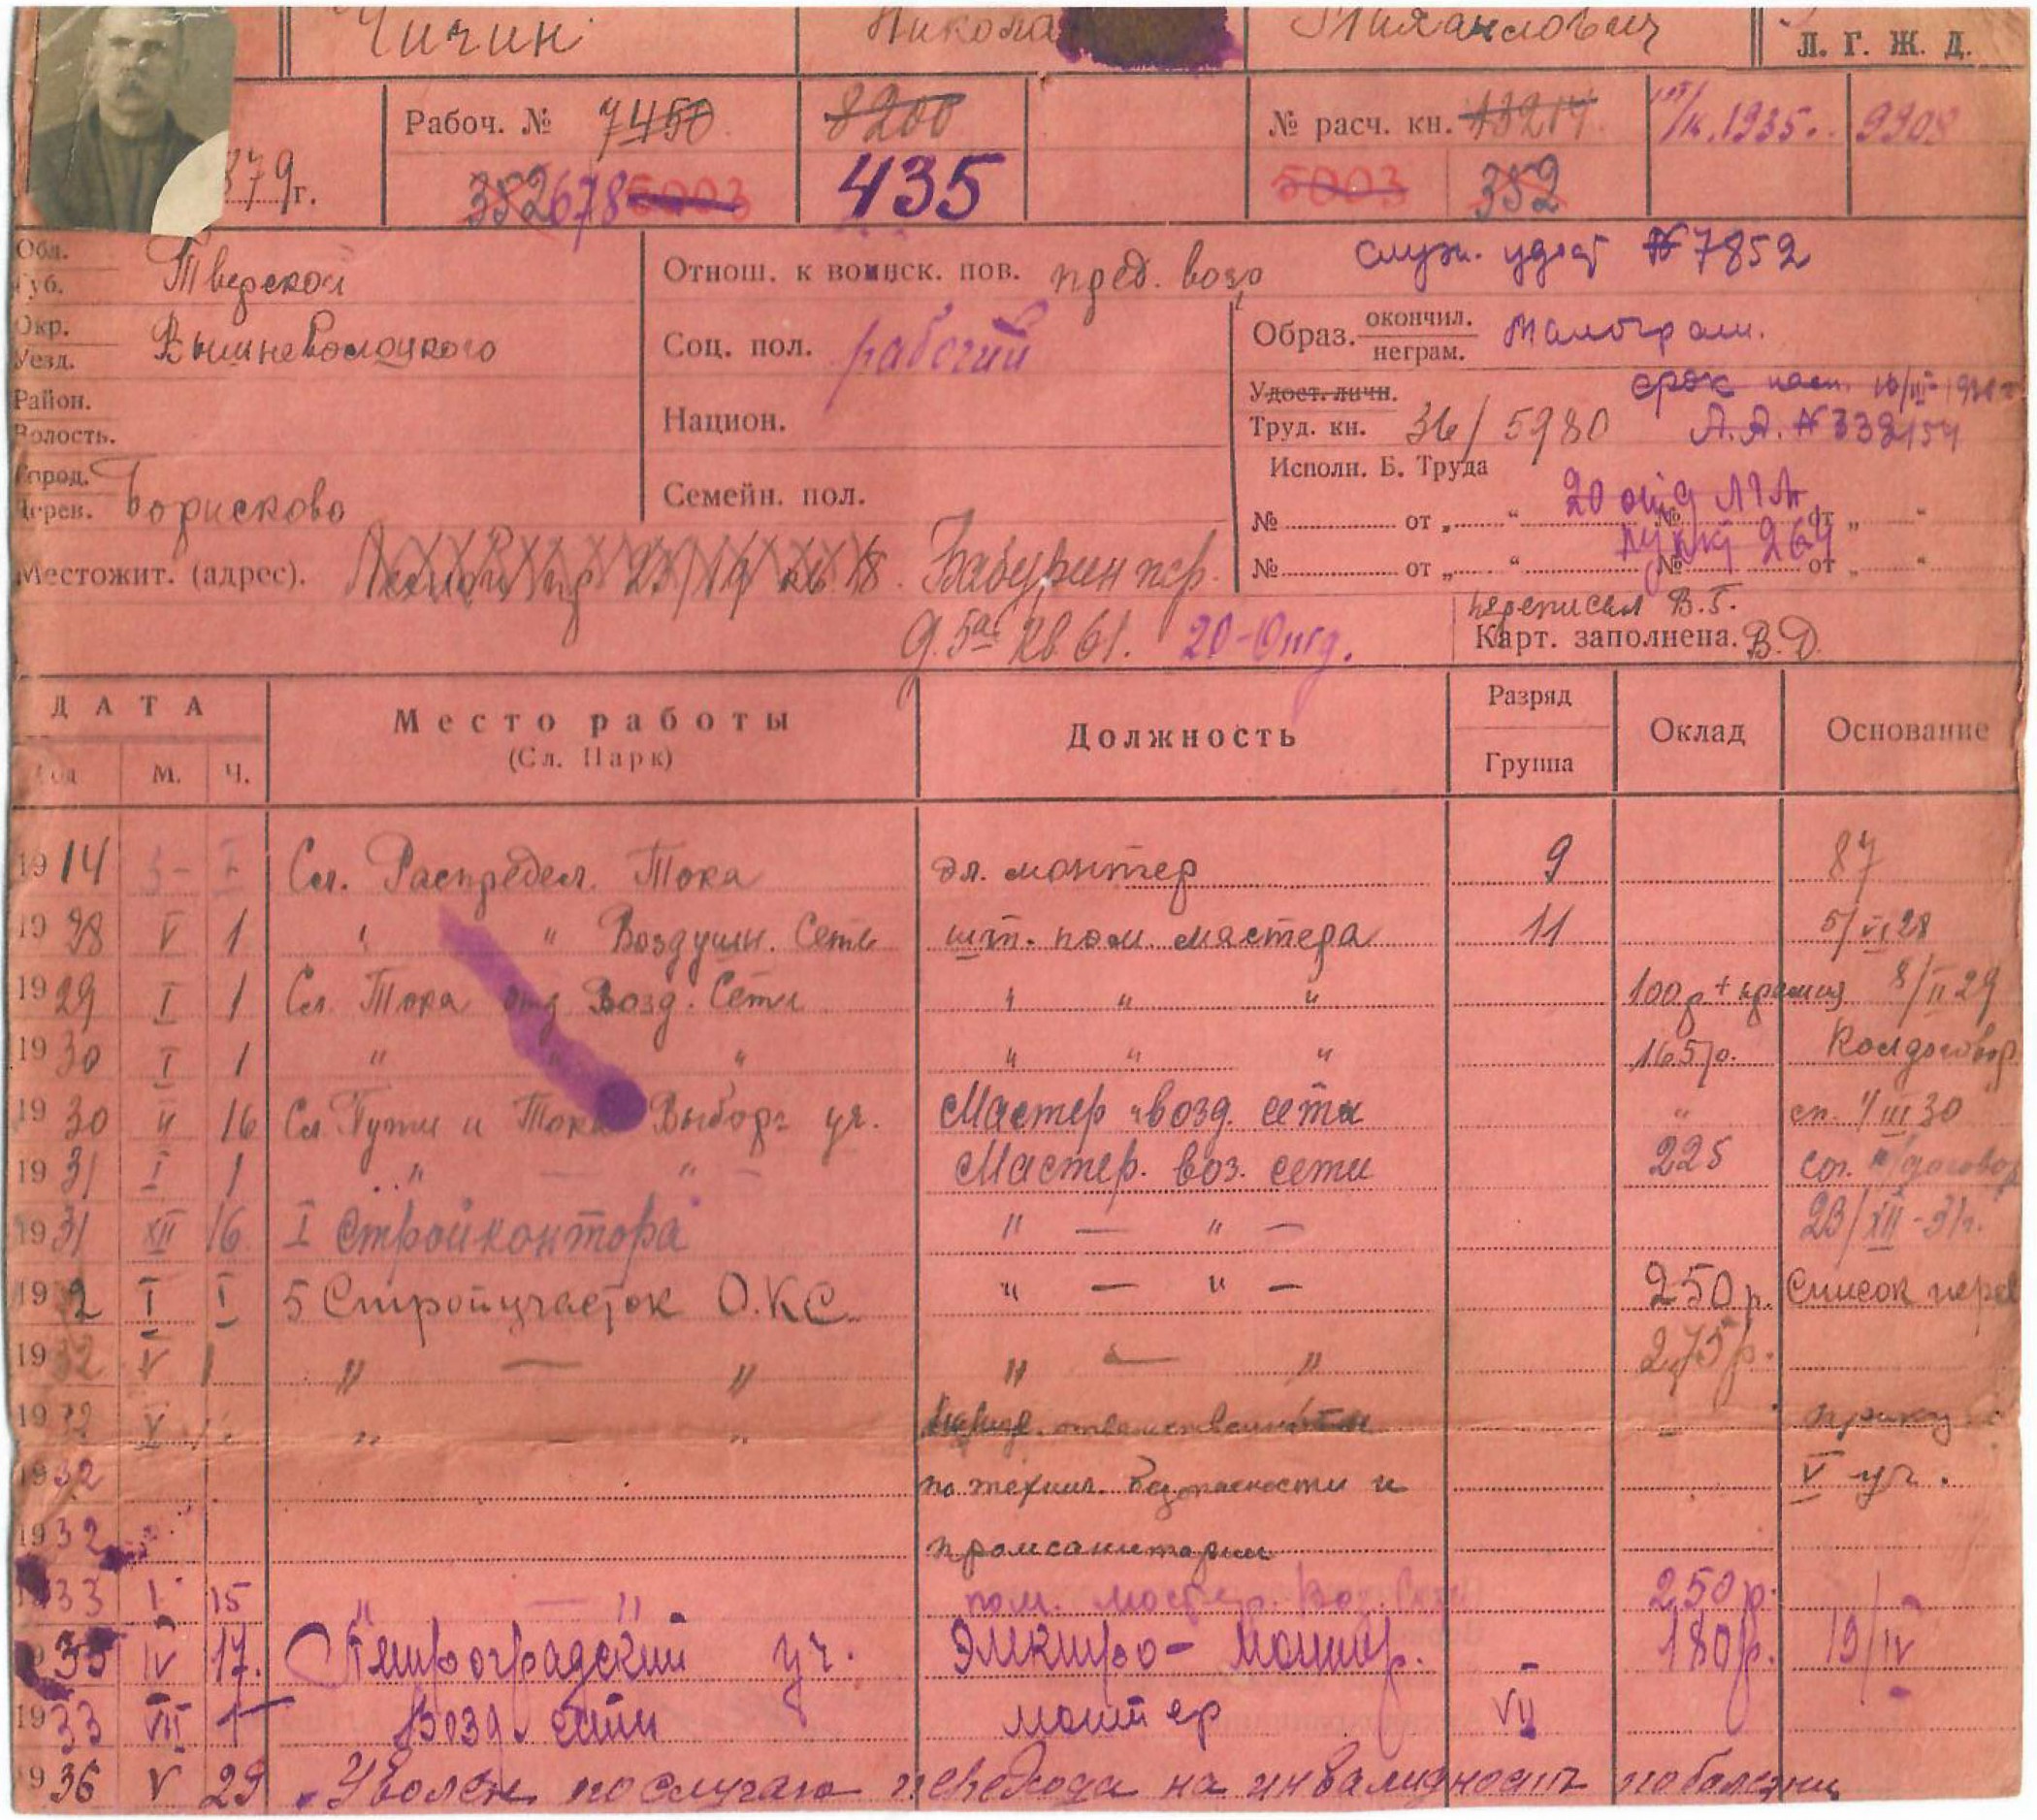 Чичин Никола Михайлович Л. Г. Ж. Д.
Рабоч. № 7450 8200 № расч. кн. 13214 1935. 9908
879 г. 352 678 5003 435 5003 352
Обл. Губ. Тверской Отнош. к воинск. пов. пред. возр служ. удост №7852
Окр. Уезд. Вышневолоцкого Соц. пол. рабочий Образ. окончил. неграм. Малограм.
Район. Волость. Национ. Удост. личн. срок пасп. 16/III
Труд. кн. 36/5980 Л.Д. №332154
Исполн. Б. Труда
Город. Дерев. Борисково Семейн. пол. № от „ “ 20 отд ЛГМ № от „ “
Местожит. (адрес). 23/19 кв 18. Бабурин пер. № от „ “ пункт 264 № от „ “
д. 5а кв 61. 20-Отд. переписал В.Г.
Карт. заполнена. В.Д.
ДАТА Место работы (Сл. Парк) Должность Разряд Группа Оклад Основание
Год М. Ч.
1914 Сл. Распредел. Тока эл. монтер 9 87
1928 V 1 " " Воздушн. Сеть шт. пом. мастера 11 5/VI 28
1929 I 1 Сл. Тока отд Возд. Сети " " " 100р + премия 8/II 29
1930 I 1 " " " " " " 165р. Колдоговор
1930 II 16 Сл Пути и Тока Выборг уч. Мастер возд. сети " сп. 4/III 30
1931 I 1 " — " — Мастер. воз. сети 225 сог. к/договор
1931 XII 16 I Стройконтора " — " — 23/XII-31г.
192 I I 5 Стройучасток О.К.С. " — " — 250р. Список перев
1932 V 1 " — " " — " 275р.
1932 V " — " ответственность — приказ
1932 по технич. безопасности и V уч.
1932 промсанитарии
1933 I 15 " — " пом. мастер. Воз. Сети 250р.
1933 IV 17. Петроградский уч. Электро-Монтер. — 180р. 19/IV
1933 VII 1 Возд. сети монтер VII
1936 V 29 Уволен по случаю перехода на инвалидность по болезни